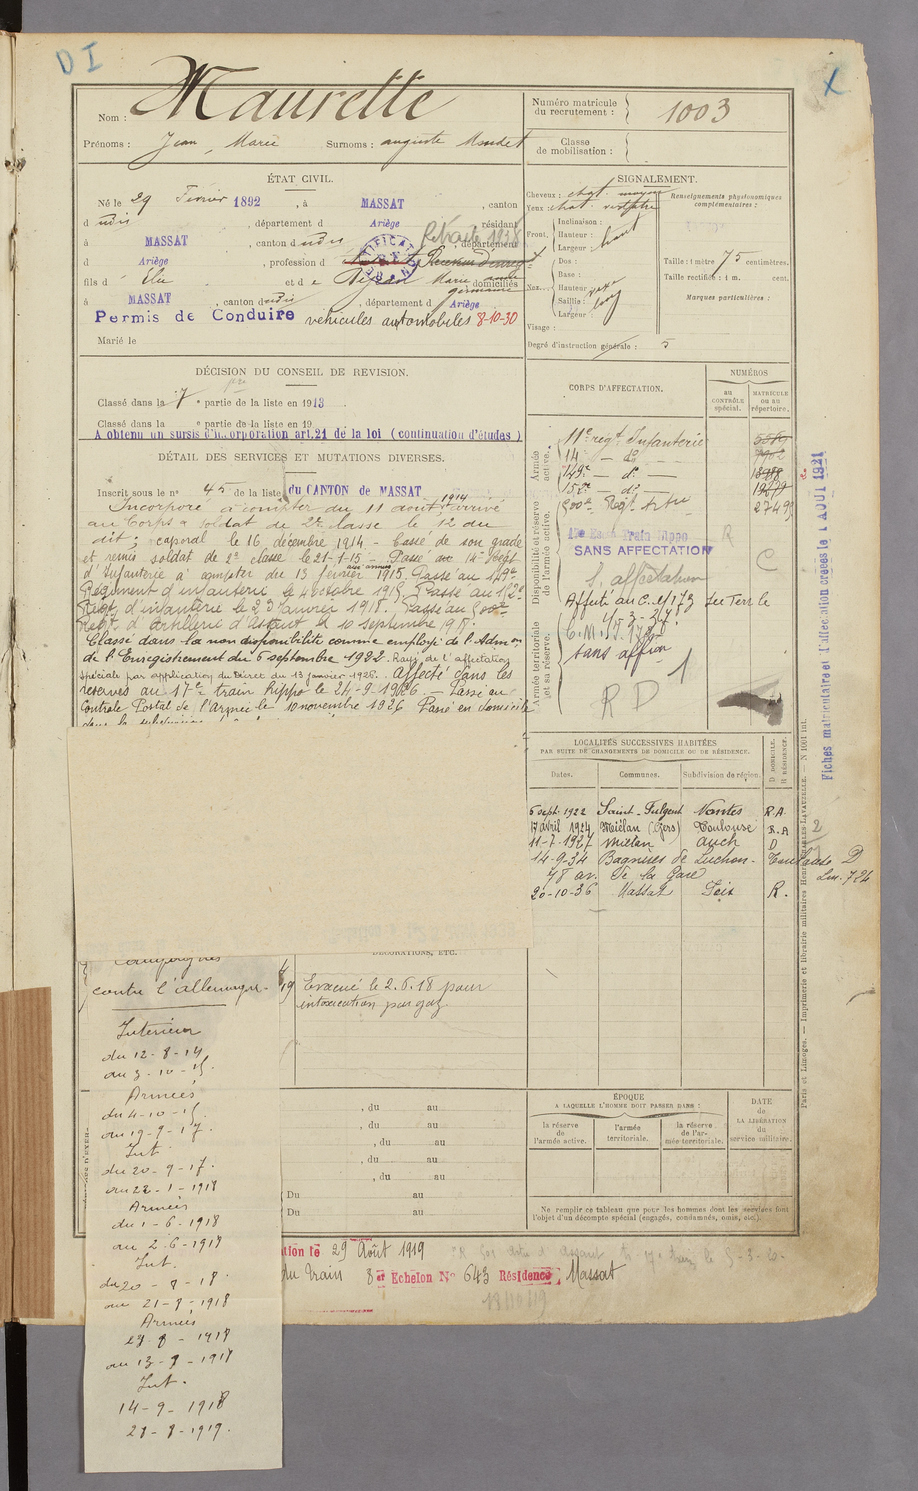 DI
X
Nom : Maurette
Prénoms : Jean, Marie Surnoms : auguste
Numéro matricule du recrutement : 1003
Classe de mobilisation :
ÉTAT CIVIL.
Né le 29 Février 1892, à MASSAT, canton
d udit, département d Ariège, résidant
à MASSAT, canton d udit, département
d Ariège, profession d
Retraité 1938
fils d Elie et d e Marie domiciliés
à MASSAT, canton dudit, département d Ariège
Permis de Conduire véhicules automobiles 8-10-30
Marié le
SIGNALEMENT.
Cheveux : chat. moyen
Yeux : chat.
Front. Inclinaison :
Hauteur : haut
Largeur :
Nez. Dos :
Base :
Hauteur
Saillie : long
Largeur :
Visage :
Degré d'instruction générale : 5
Renseignements physionomiques complémentaires :
Taille : 1 mètre 75 centimètres.
Taille rectifiée : 1 m. cent.
Marques particulières :
DÉCISION DU CONSEIL DE REVISION.
Classé dans la 7e partie de la liste en 1913
Classé dans la e partie de la liste en 19
A obtenu un sursis d'incorporation art.21 de la loi (continuation d'études)
DÉTAIL DES SERVICES ET MUTATIONS DIVERSES.
Inscrit sous le no 45 de la liste du CANTON de MASSAT
Incorporé à compter du 11 août 1914 arrivé
au Corps & soldat de 2e classe le 12 du
dit ; caporal le 16 décembre 1914. - Cassé de son grade
et remis soldat de 2e classe le 21-1-15 - Passé au 14e Régt
d'Infanterie à compter du 13 février 1915. Passé au 149e
Régiment d'infanterie le 4 octobre 1915. Passé au 152e
Régt d'infanterie le 23 Janvier 1918. Passé au 500e
Régt d'artillerie d'Assaut le 10 septembre 1918.
Classé dans la non disponibilité comme employé de l'Admon
de l'Enregistrement du 6 septembre 1922. Rayé de l'affectation
spéciale par application du Décret du 13 janvier 1926. Affecté dans les
réserves au 17e train hippo le 24-9-1926. - Passé au
Contrôle Postal de l'Armée le 10 novembre 1926 Passé en domicile
CORPS D'AFFECTATION.
NUMÉROS
au CONTRÔLE spécial.
MATRICULE ou au répertoire.
Armée active.
11e régt Infanterie
14 - do -
149e - do -
152e - do -
500e Régt Artie
Disponibilité et réserve de l'armée active.
Train Hippo
SANS AFFECTATION
R
C
S. affectation
Armée territoriale et sa réserve.
sans affion
RD 1
Fiches matriculaire et d'affectation créées le 1 AOUT 1921
LOCALITÉS SUCCESSIVES HABITÉES
PAR SUITE DE CHANGEMENTS DE DOMICILE OU DE RÉSIDENCE.
Dates. Communes. Subdivision de région. D DOMICILE. R RÉSIDENCE.
6 sept. 1922 Saint-Fulgent Nantes R.A.
17 avril 1924 Miélan (Gers) Toulouse R.A
11-7-1927 Miélan Auch D
14-9-34 Bagnères de Luchon- Toulouse D
48 av. de la Gare
20-10-36 Massat Foix R.
DÉCORATIONS, ETC.
Evacué le 2.6.18 pour
intoxication par gaz
Campagnes
contre l'allemagne.
Intérieur
du 12-8-14
au 3-10-15
Armées
du 4-10-15
au 19-9-17
Int
du 20-9-17
au 22-1-1918
Armées
du 1-6-1918
au 2-6-1918
Int.
du 20-8-18
au 21-8-1918
Armées
au 13-9-1918
Int.
14-9-1918
28-8-1919.
, du au
, du au
, du au
, du au
, du au
Du au
Du au
ÉPOQUE
A LAQUELLE L'HOMME DOIT PASSER DANS :
la réserve de l'armée active.
l'armée territoriale.
la réserve de l'armée territoriale.
DATE de LA LIBÉRATION du service militaire.
Ne remplir ce tableau que pour les hommes dont les services font
l'objet d'un décompte spécial (engagés, condamnés, omis, etc.).
29 Août 1919
du train 8e Echelon No 643 Résidence Massat
Paris et Limoges. — Imprimerie et librairie militaires Henri CHARLES-LAVAUZELLE.